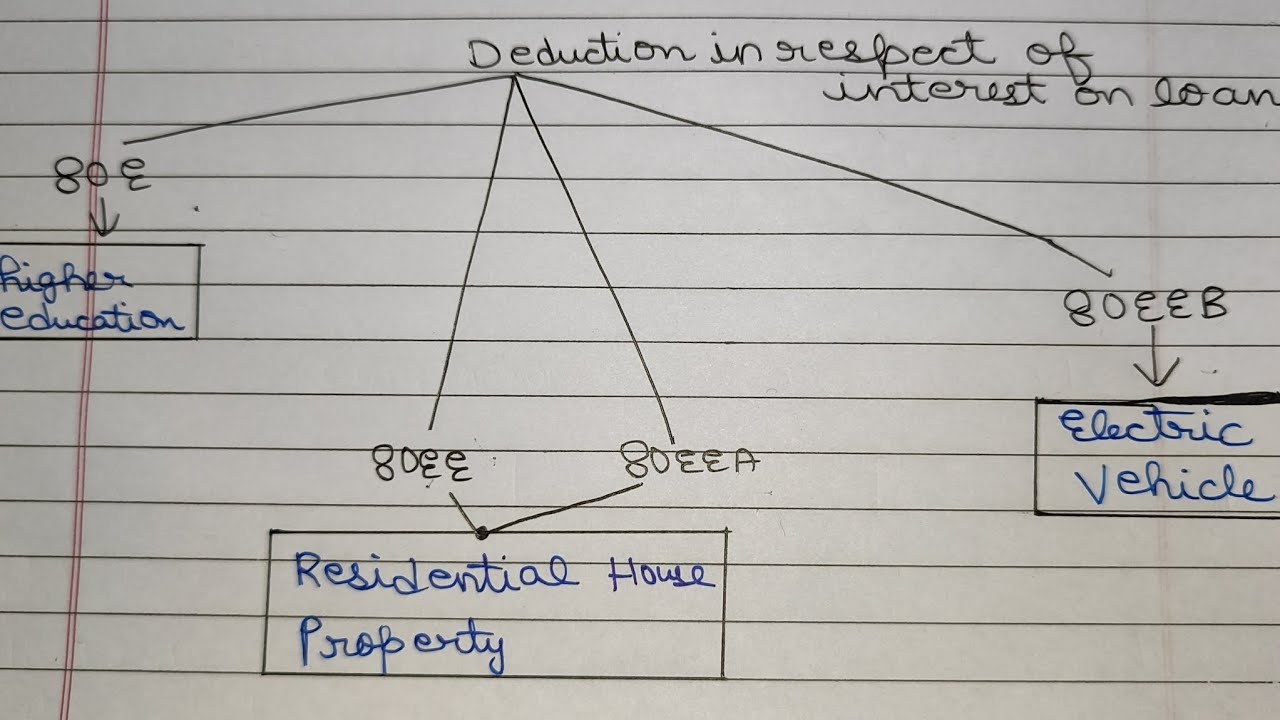 Deduction in respect of
interest on loan
80E
higher
education
80EEB
Electric
Vehicle
80EE
80EEA
Residential House
Property